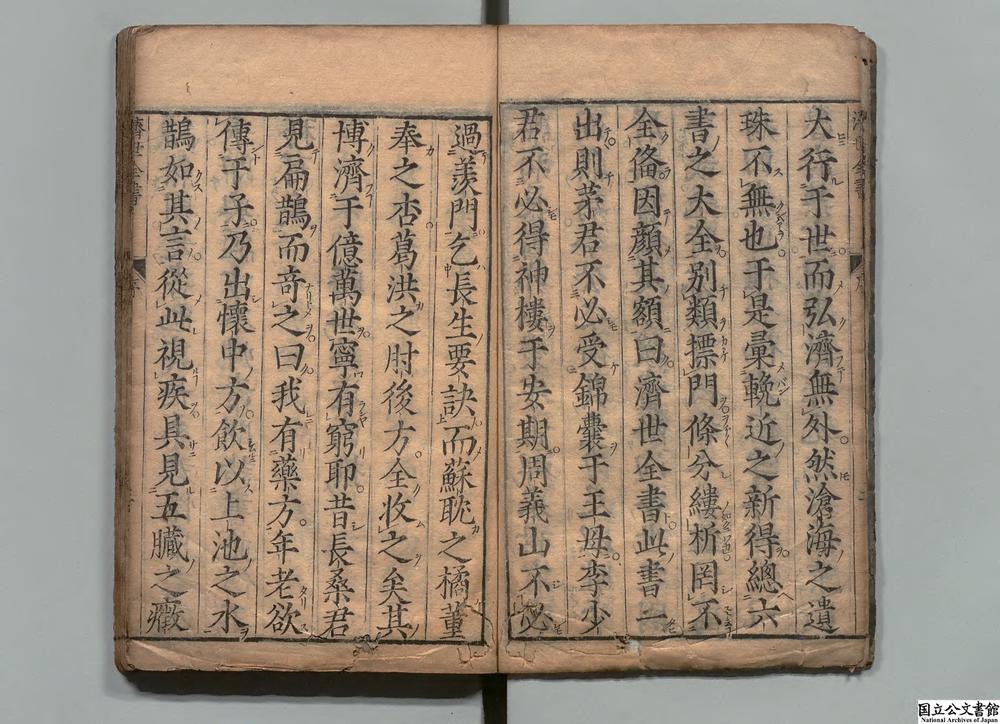 大行于世而弘濟無外然滄海之遺
珠不無也于是彙輓近之新得總六
書之大全別類摽門條分縷析罔不
全俻因顏其額曰濟世全書此書一
出則茅君不必受錦囊于王母李少
君不必得神樓于安期周義山不必
過羨門乞長生要訣而蘇耽之橘董
奉之杏葛洪之肘後方全收之矣其
博濟于億萬世寧有窮耶昔長桑君
見扁鵲而奇之曰我有藥方年老欲
傳于子乃出懷中方飲以上池之水
鵲如其言從此視疾具見五臟之癥
濟世全書
序
国立公文書館
National Archives of Japan